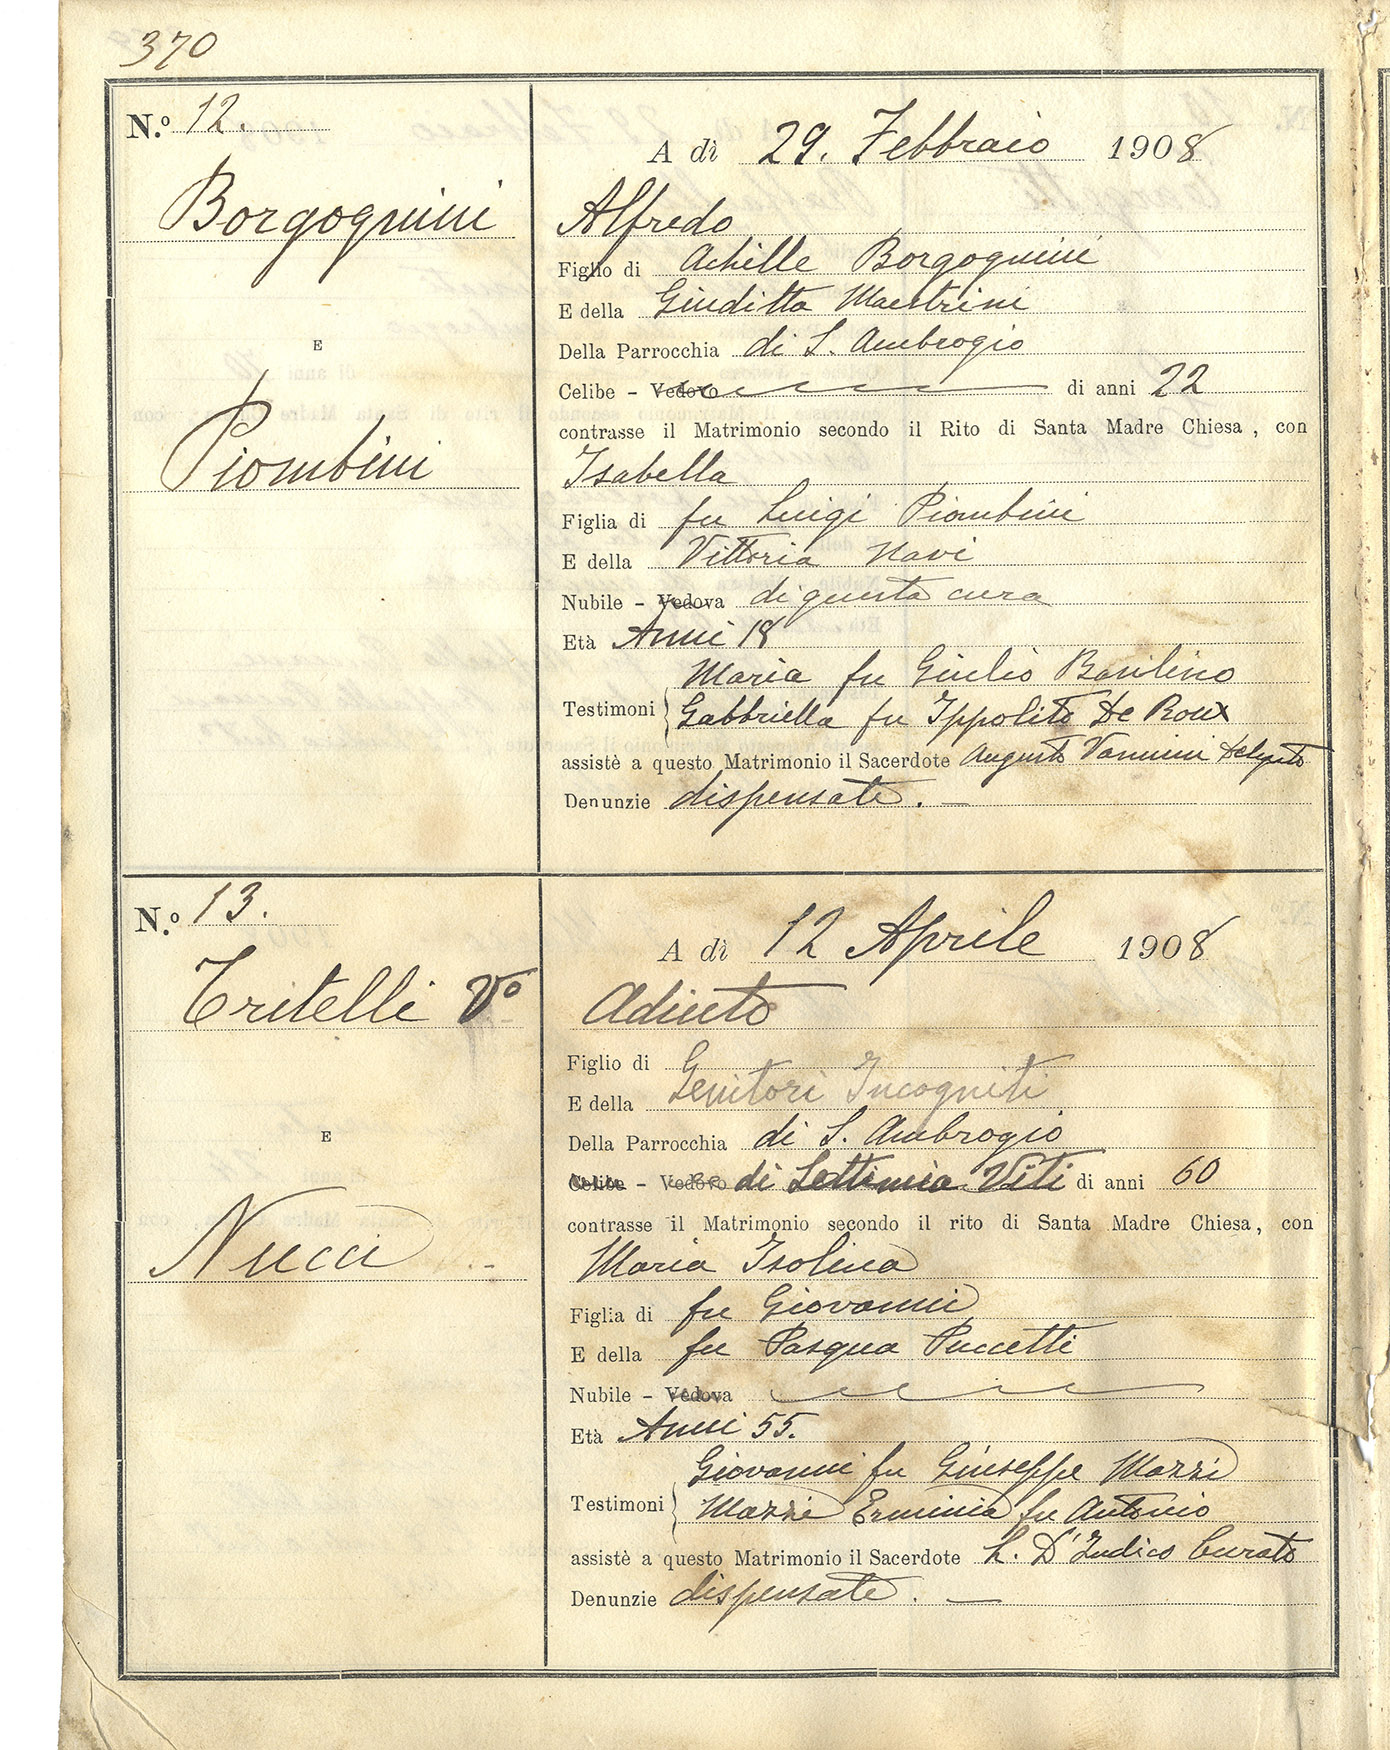 370
N.º 12.
Borgognini
E
Piombini
A dì 29. Febbraio 1908
Alfredo
Figlio di Achille Borgognini
E della Giuditta Maestrini
Della Parrocchia di S. Ambrogio
Celibe - Vedovo di anni 22
contrasse il Matrimonio secondo il Rito di Santa Madre Chiesa, con
Isabella
Figlia di fu Luigi Piombini
E della Vittoria Navi
Nubile - Vedova di questa cura
Età Anni 18
Maria fu Giulio
Testimoni Gabbriella fu Ippolito De Roux
assistè a questo Matrimonio il Sacerdote Augusto Vannini Delegato
Denunzie dispensate. —
N.º 13.
Tritelli Vº
E
Nucci
A dì 12 Aprile 1908
Adiuto
Figlio di
E della Genitori Incogniti
Della Parrocchia di S. Ambrogio
Celibe - Vedovo di Settimia Viti di anni 60
contrasse il Matrimonio secondo il rito di Santa Madre Chiesa, con
Maria Isolina
Figlia di fu Giovanni
E della fu Pasqua Puccetti
Nubile - Vedova
Età Anni 55.
Giovanni fu Giuseppe Mazzi
Testimoni Mazzi Erminia fu Antonio
assistè a questo Matrimonio il Sacerdote L. D'Indico Curato
Denunzie dispensate. —